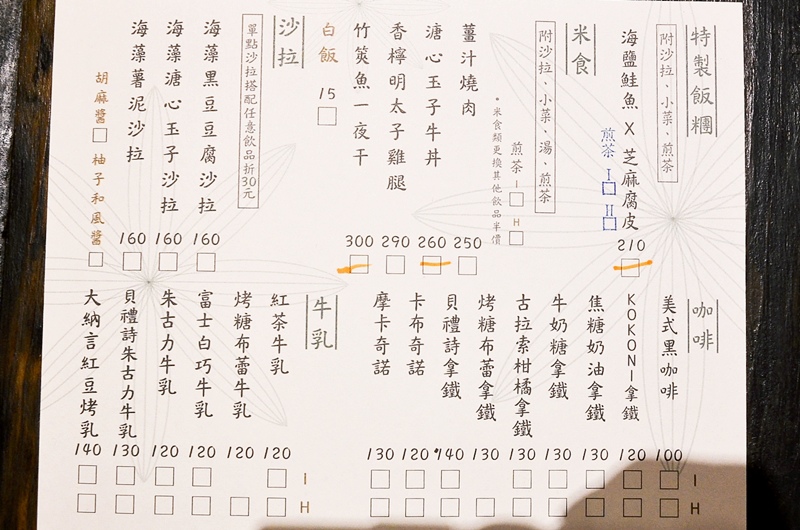 特製飯糰
附沙拉、小菜、煎茶
海鹽鮭魚 X 芝麻腐皮
210
煎茶 I
H
米食
附沙拉、小菜、湯、煎茶
煎茶 I
H
•米食類更換其他飲品半價
薑汁燒肉
250
溏心玉子牛丼
260
香檸明太子雞腿
290
竹筴魚一夜干
300
白飯
15
沙拉
單點沙拉搭配任意飲品折30元
海藻黑豆豆腐沙拉
160
海藻溏心玉子沙拉
160
海藻薯泥沙拉
160
胡麻醬
柚子和風醬
咖啡
美式黑咖啡
100
KOKONI拿鐵
120
焦糖奶油拿鐵
130
牛奶糖拿鐵
130
古拉索柑橘拿鐵
130
烤糖布蕾拿鐵
130
貝禮詩拿鐵
140
卡布奇諾
120
摩卡奇諾
130
I
H
牛乳
紅茶牛乳
120
烤糖布蕾牛乳
120
富士白巧牛乳
120
朱古力牛乳
120
貝禮詩朱古力牛乳
130
大納言紅豆烤乳
140
I
H